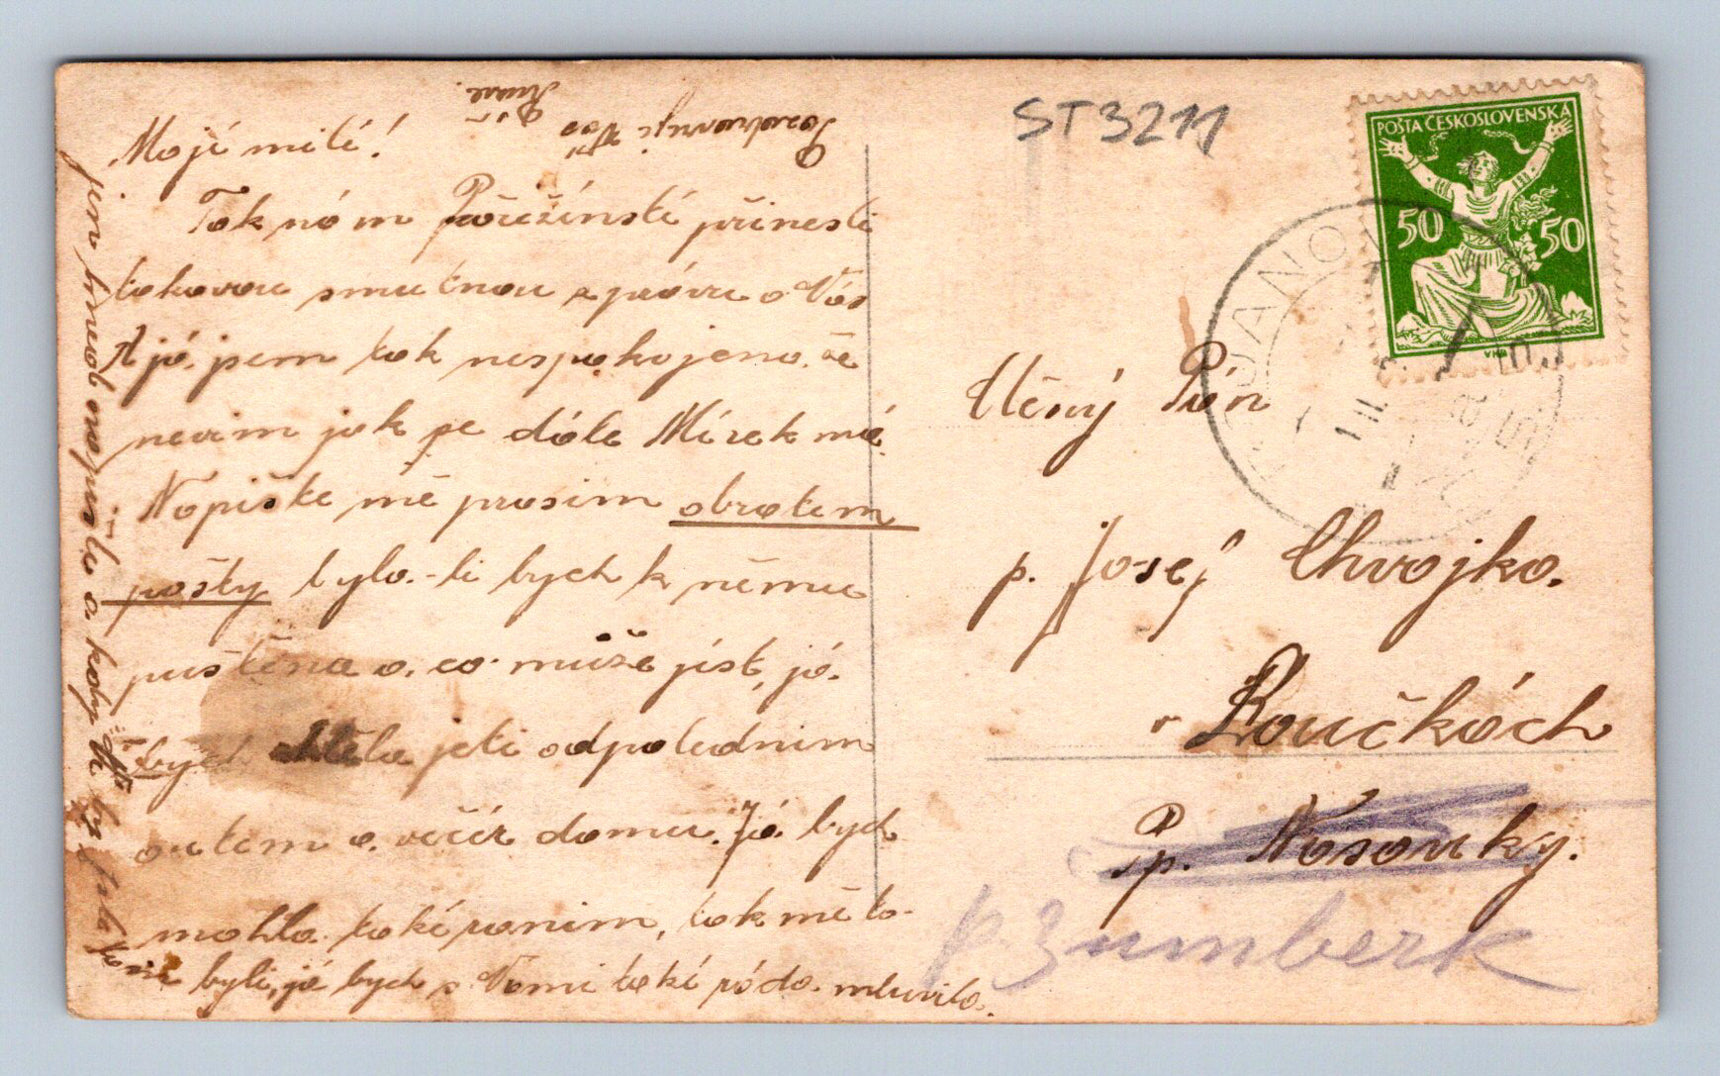 Mojí milí!
Tak nám Pořežínští přinesli
takovou smutnou zprávu o Vás
A já jsem tak nespokojena. že
nevim jak se dále Mírek má.
Napište mě prosim obratem
pošty bylo-li bych k němu
puštěna a. co může jíst, já.
bych chtěla jeti odpolednim
autem a. večér domu. Já bych
mohla také ranim, tak mě to-
byli, já bych s Vámi také ráda. mluvila.
jim hned napišlu a kdyby
Pozdravuji Vás
ST3211
POŠTA ČESKOSLOVENSKÁ
50 50
Ctěný Pán
p. Josef Chvojka.
v Roučkách
Pp. Nasavrky.
p. Zumberk